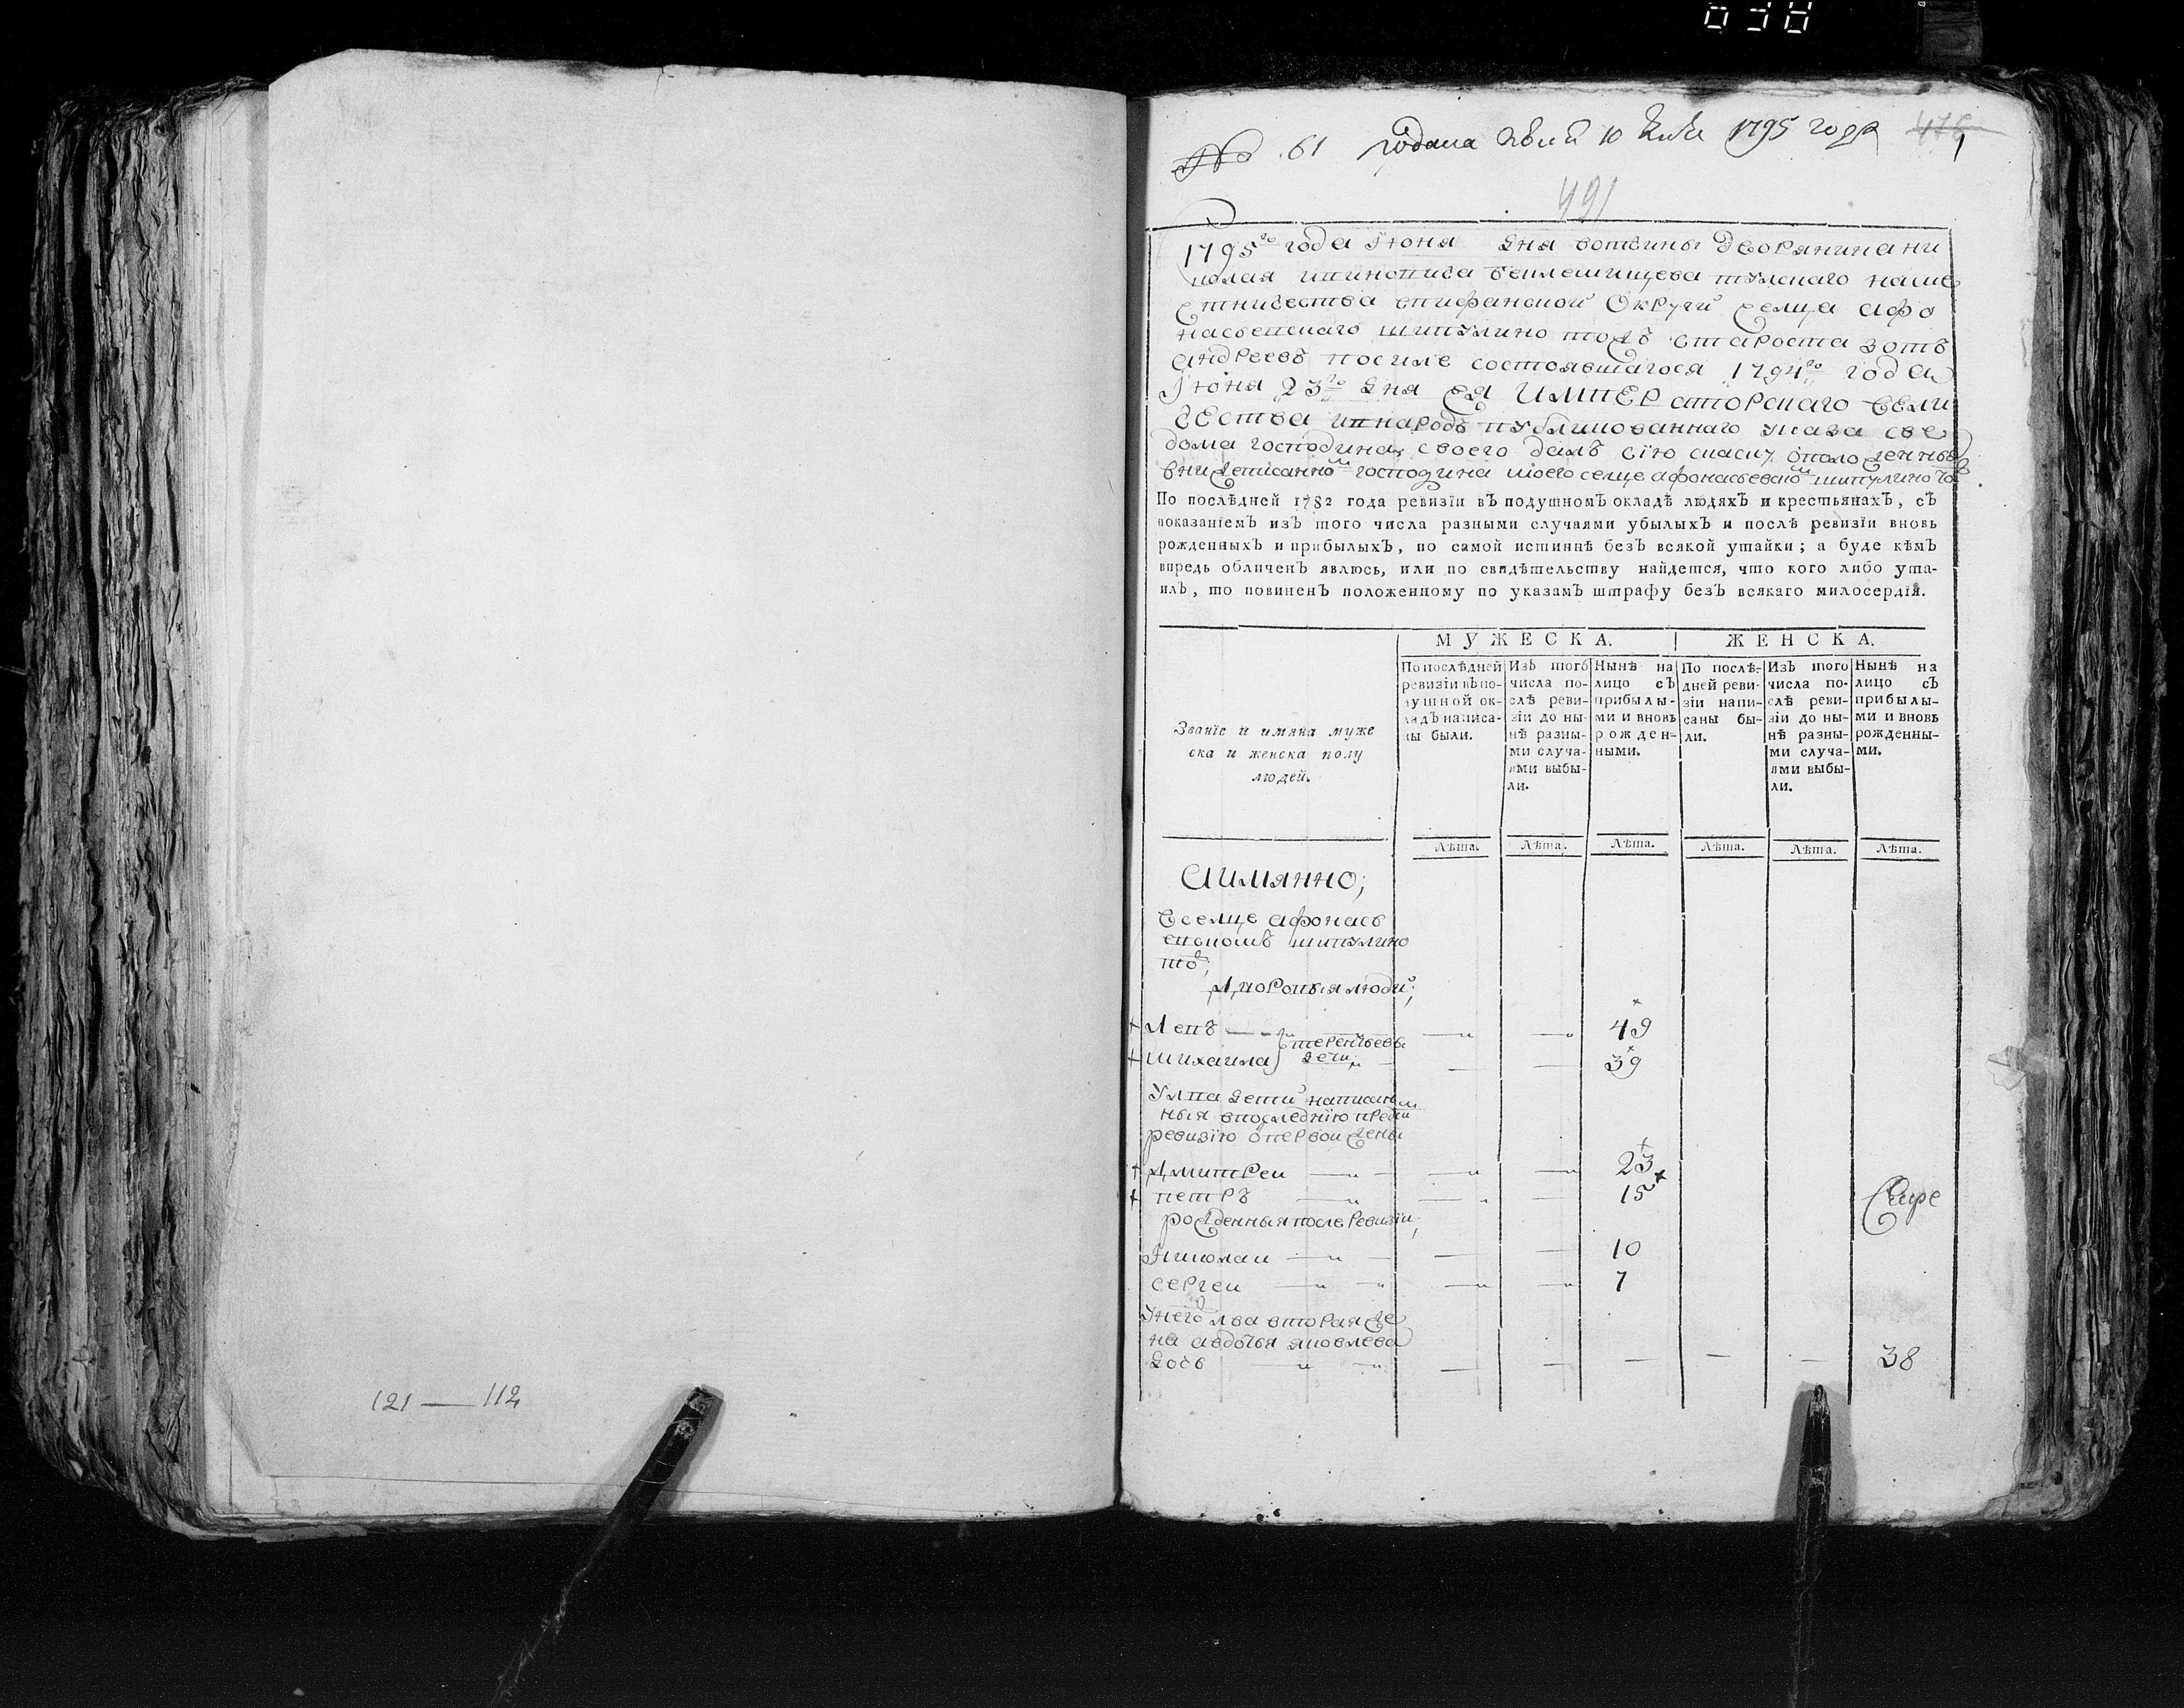 № 61 подана июня 10 1795 года 476
491
1795го года Июня дня вотчины дворянина ни
колая Беклемишева тулскаго наме
стничества епифанской Округи селца афо
насьевскаго шипулино тожъ староста зотъ
андреевъ посиле состоявшагося 1794го года
Июня 23го дня ея ИМПЕРаторскаго вели
чества и внародъ публикованнаго указа све
дома господина своего далъ сию скаску о положенныхъ
внижеписанномъ господина моего селце афонасьевскомъ шипулино тожъ
По послѣдней 1782 года ревизїи въ подушномъ окладѣ людяхъ и крестьянахъ, съ
показанїемъ изъ того числа разными случаями убылыхъ и послѣ ревизїи вновь
рожденныхъ и прибылыхъ, по самой истиннѣ безъ всякой утайки; а буде кѣмъ
впредь обличенъ явлюсь, или по свидѣтельству найдется, что кого либо ута-
илъ, то повиненъ положенному по указамъ штрафу безъ всякаго милосердїя.
МУЖЕСКА. ЖЕНСКА.
Званїе и имяна муже
ска и женска полу
людей.
По послѣдней
ревизїи въ по-
душной ок-
ладъ написа-
ны были.
Изъ того
числа по-
слѣ реви-
зїи до ны-
нѣ разны-
ми случа-
ями выбы-
ли.
Нынѣ на
лицо съ
прибылы-
ми и вновь
рожден-
ными.
По послѣ-
дней реви-
зїи напи-
саны бы-
ли.
Изъ того
числа по-
слѣ реви-
зїи до ны-
нѣ разны-
ми случа-
ями выбы-
ли.
Нынѣ на
лицо съ
прибылы-
ми и вновь
рожденны-
ми.
Лѣта. Лѣта. Лѣта. Лѣта. Лѣта. Лѣта.
Аимянно;
Вселце афонась
евскомъ шипулино
тожъ;
Дворовыя люди;
+ Левъ терентьевы 49
+ Михаила дети 39
Улва дети написан
ныя впоследнюю пред сим
ревизию о первой жены
+ Дмитреи 23
+ петръ 15
рожденныя после Ревизии;
Николаи 10
сергеи 7
Унего лва вторая же
на авдотья яковлева
дочь 38
121 — 112